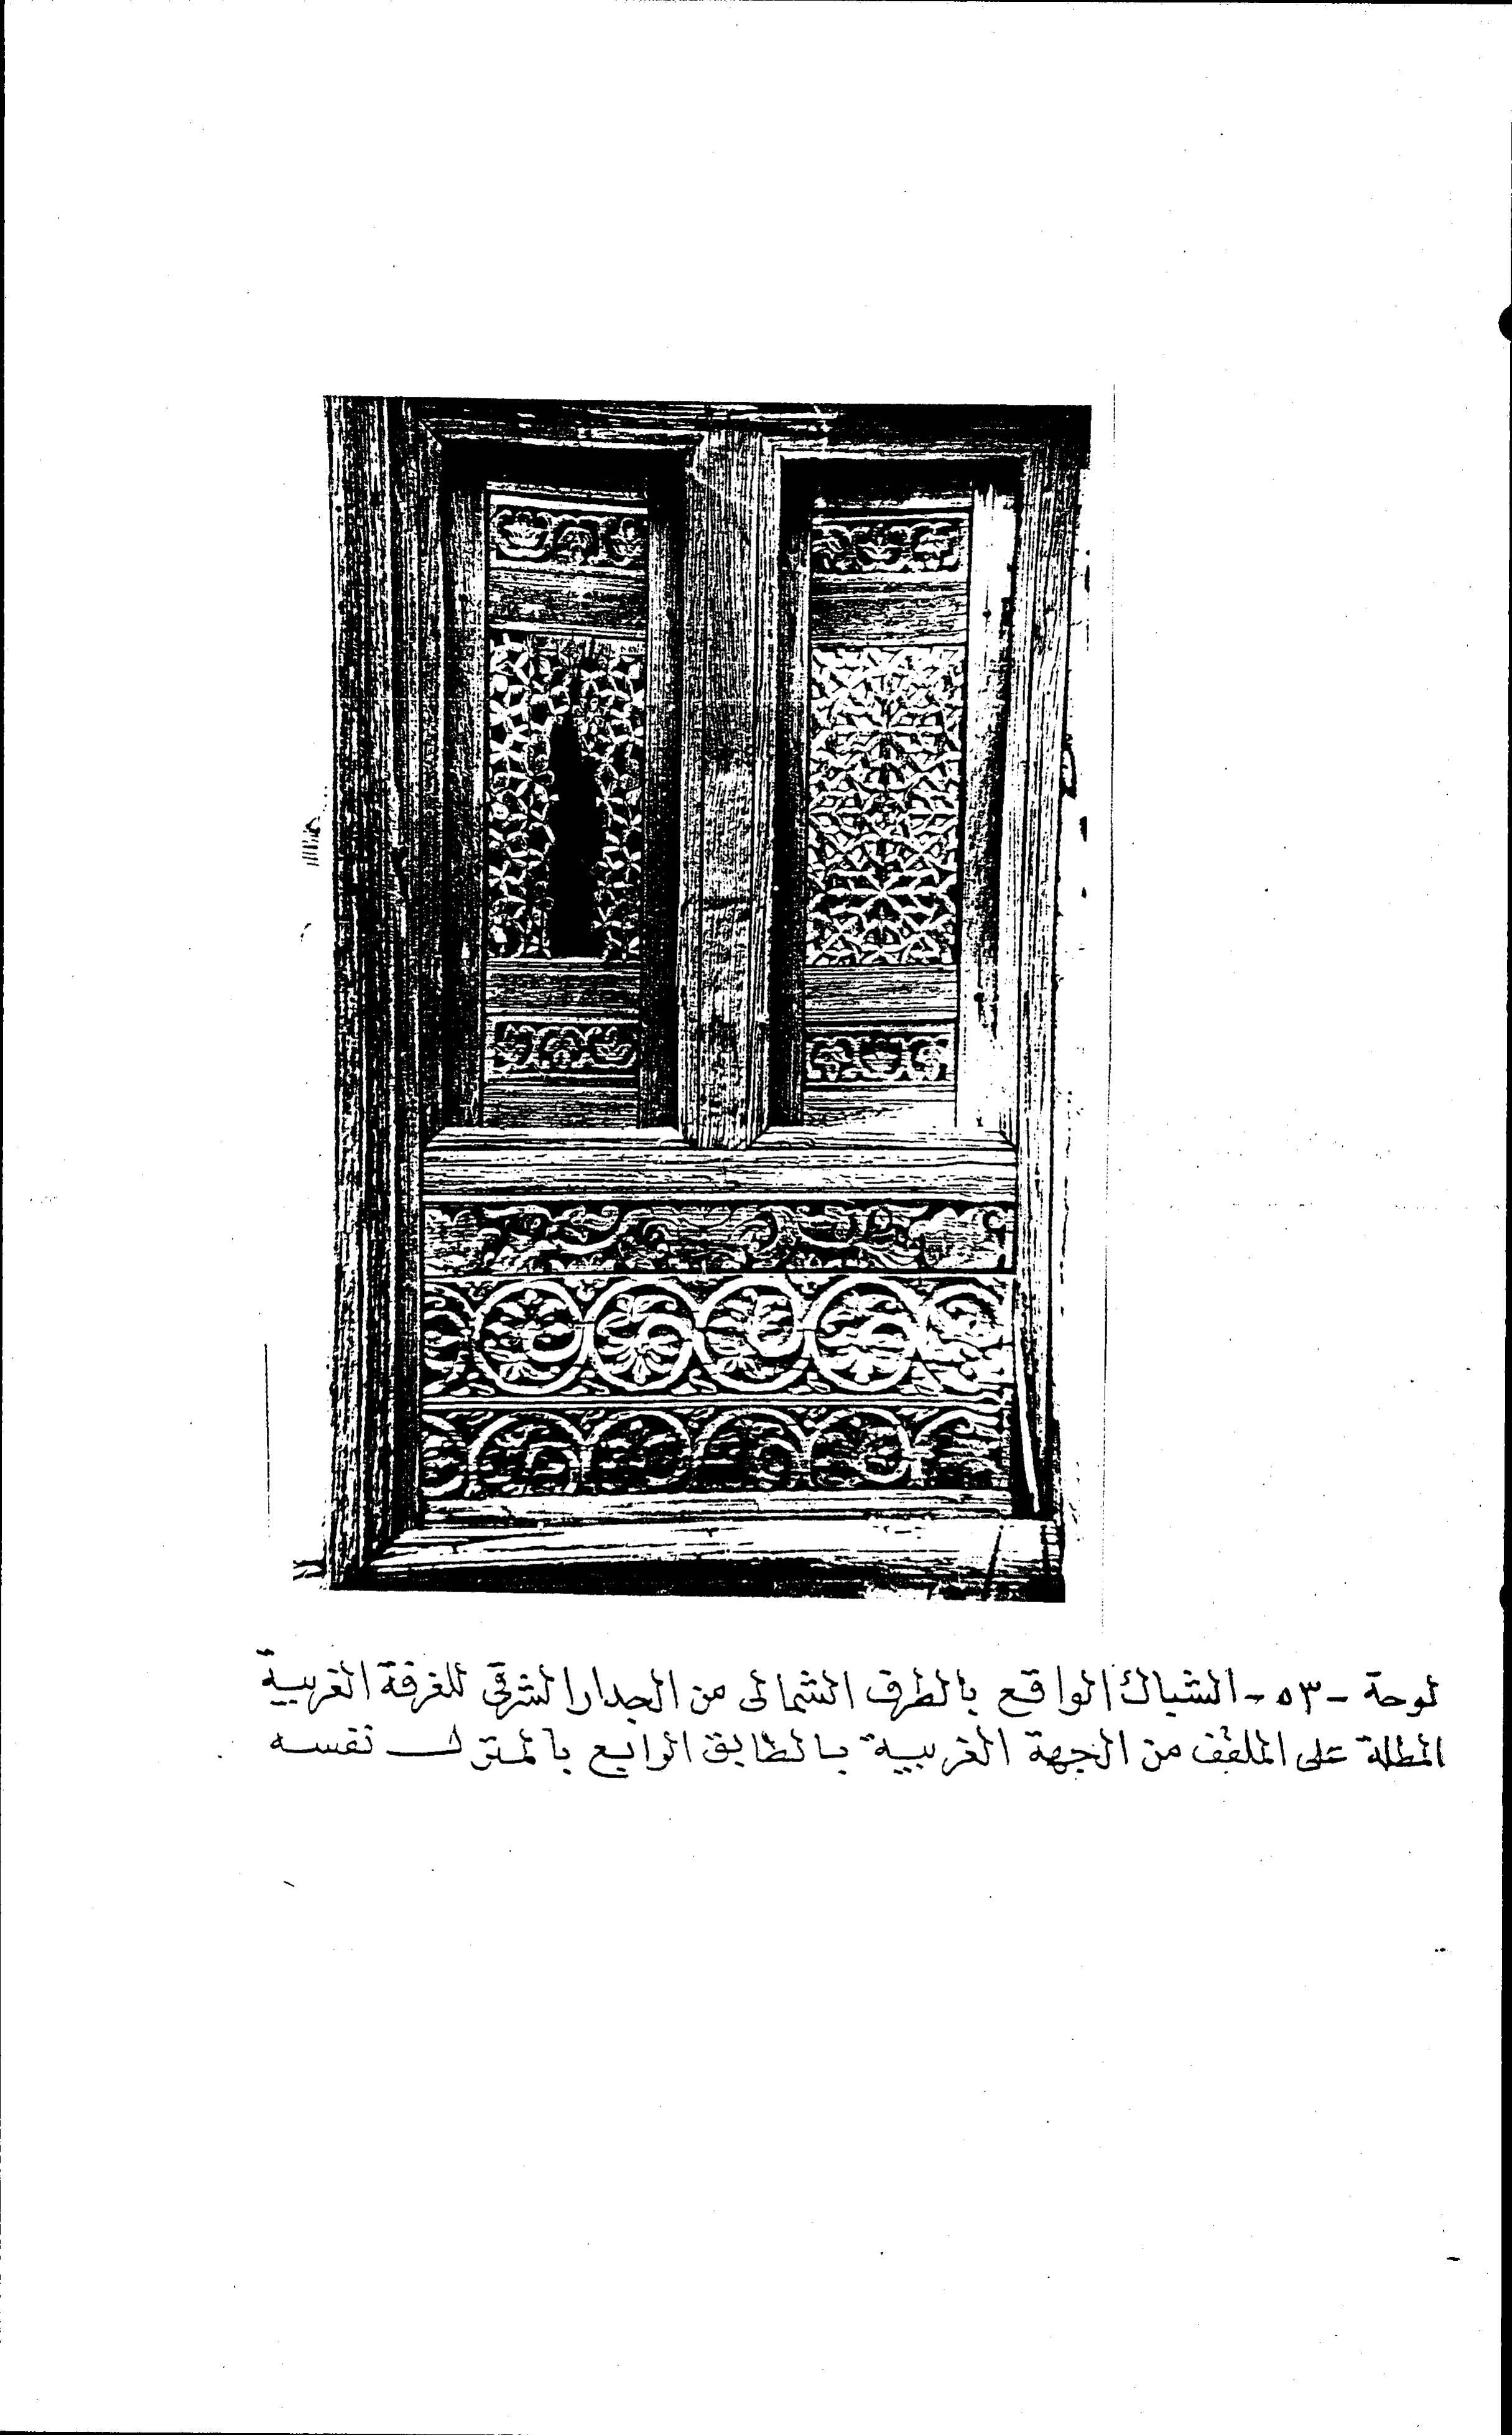 لوحة - ٥٣ - الشباك الواقع بالطرف الشمالى من الجدار الشرقى للغرفة الغربية
المطلة على الملقف من الجهة الغربية بالطابق الرابع بالمنزل نفسه